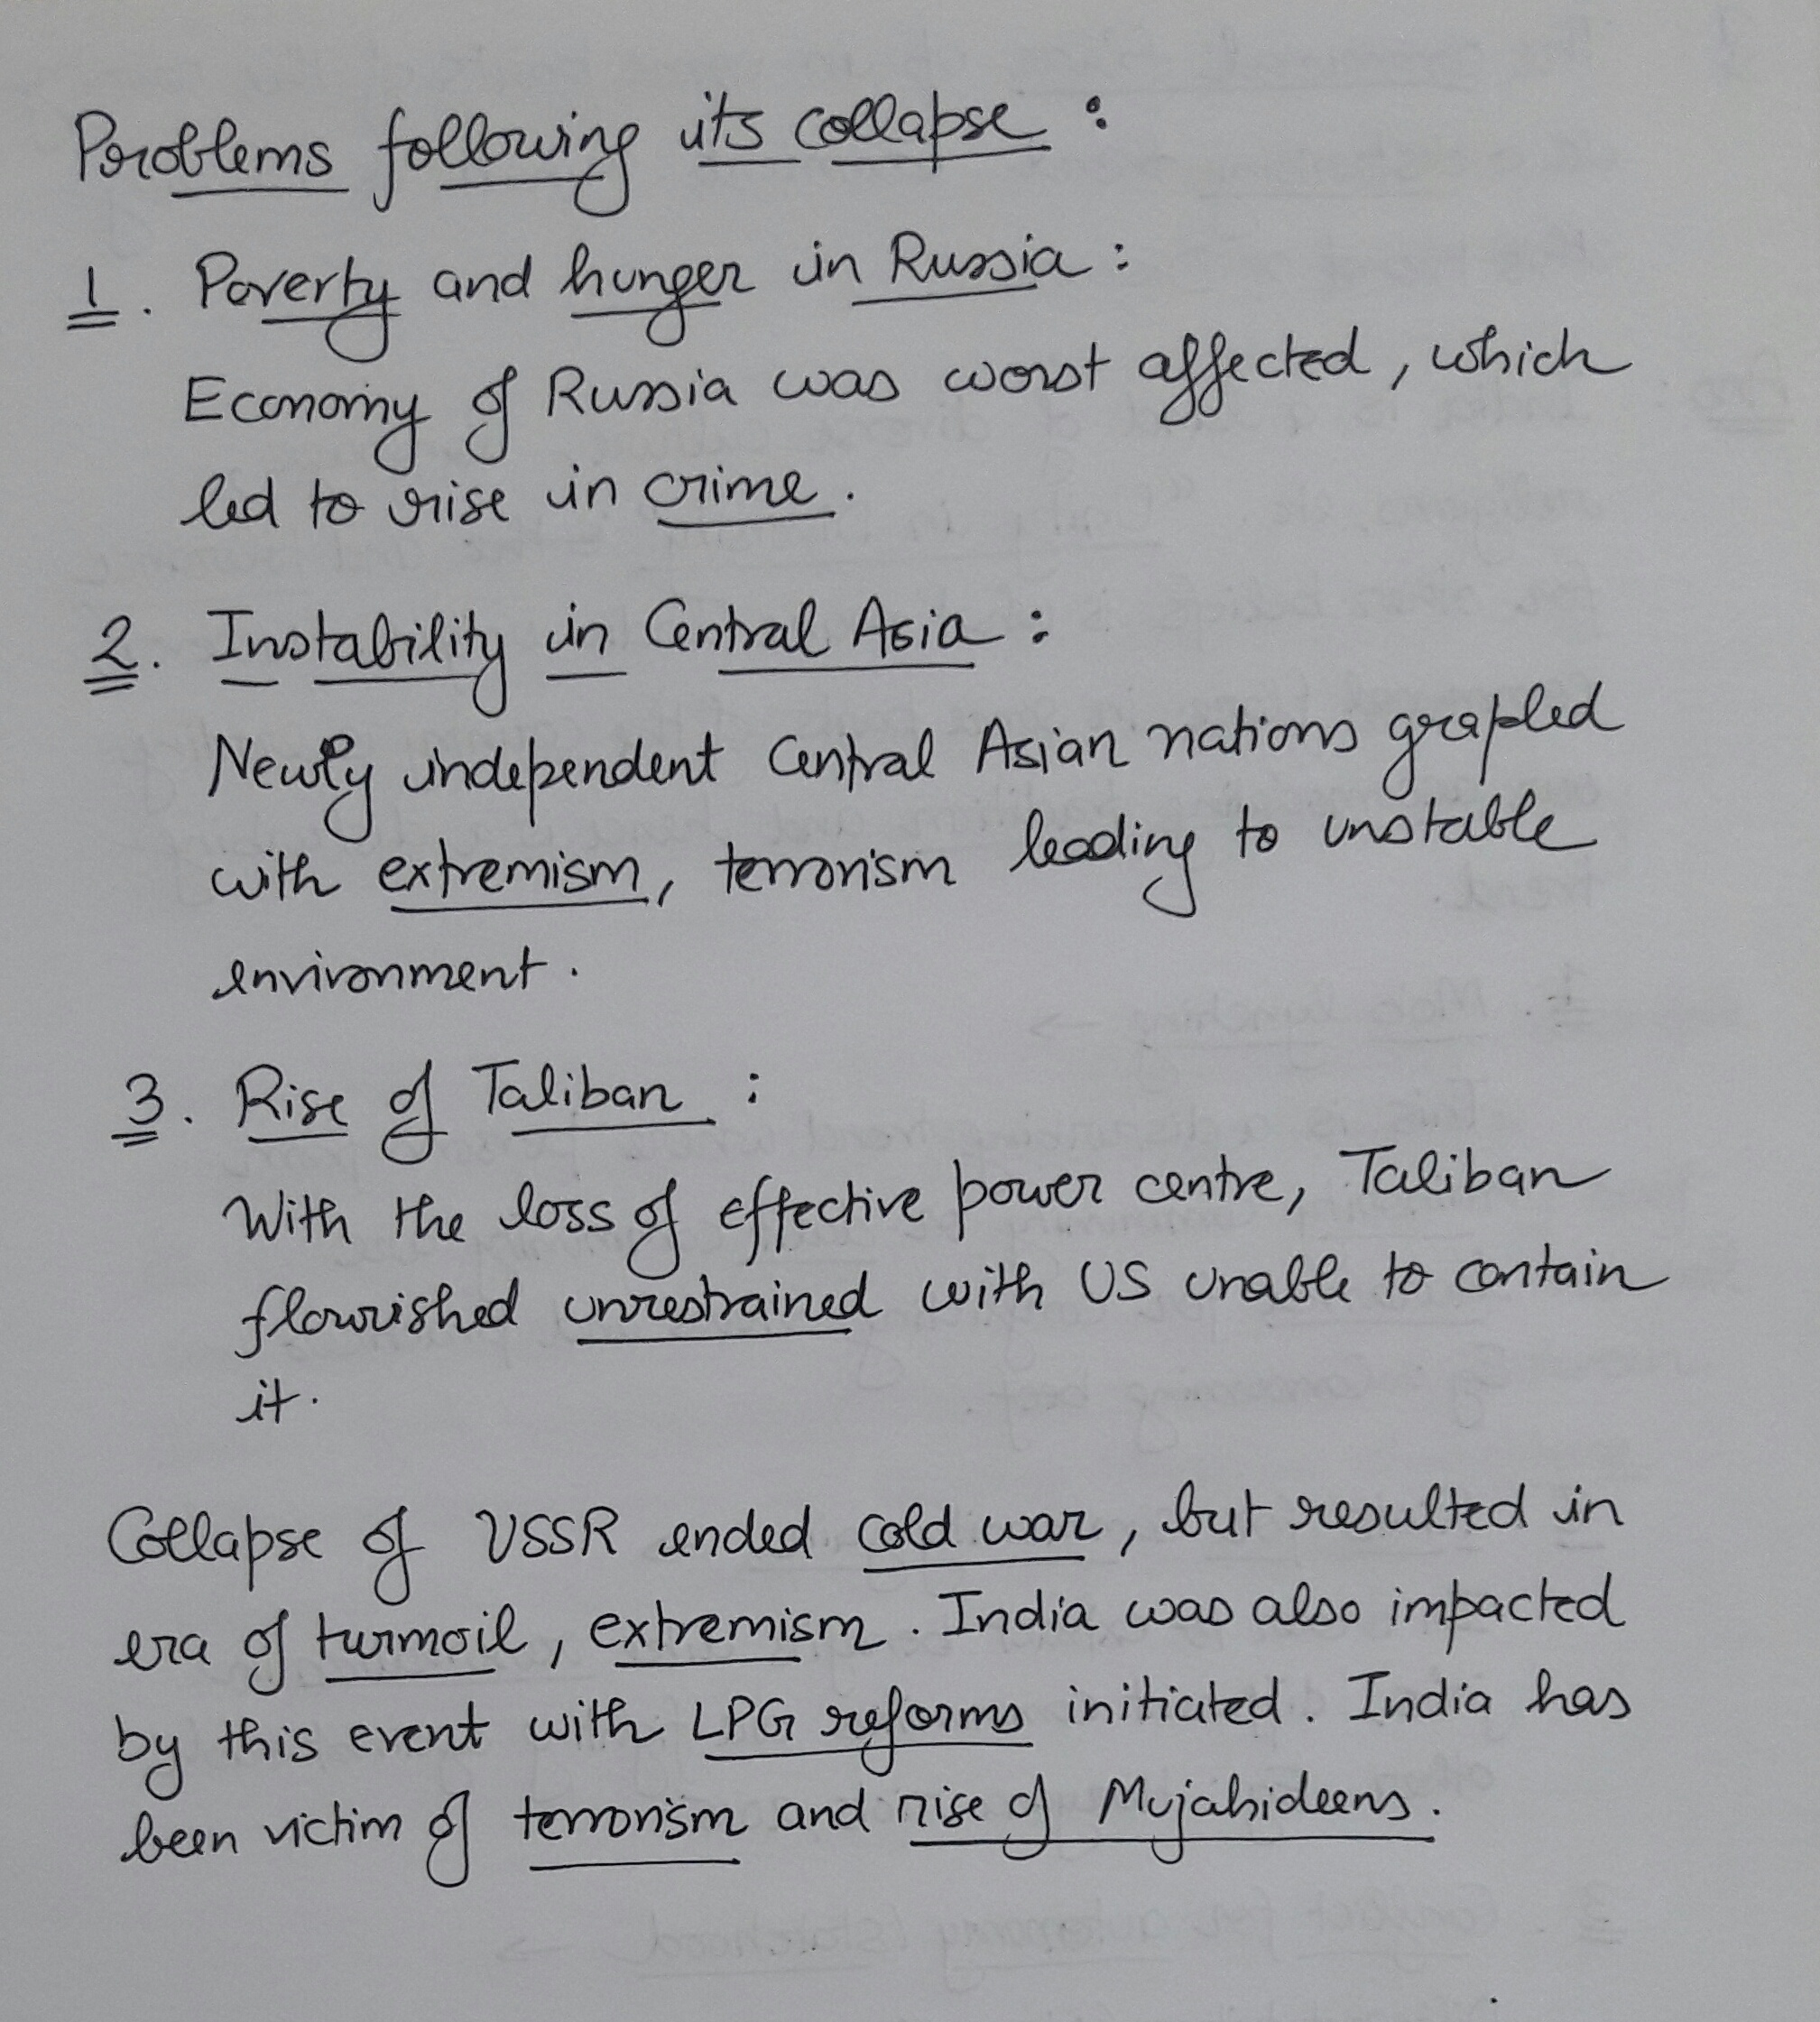 Problems following its collapse :
1. Poverty and hunger in Russia :
Economy of Russia was worst affected, which
led to rise in crime.
2. Instability in Central Asia :
Newly independent Central Asian nations grapled
with extremism, terrorism leading to unstable
environment.
3. Rise of Taliban :
With the loss of effective power centre, Taliban
flourished unrestrained with US unable to contain
it.
Collapse of USSR ended cold war, but resulted in
era of turmoil, extremism. India was also impacted
by this event with LPG reforms initiated. India has
been victim of terrorism and rise of Mujahideens.